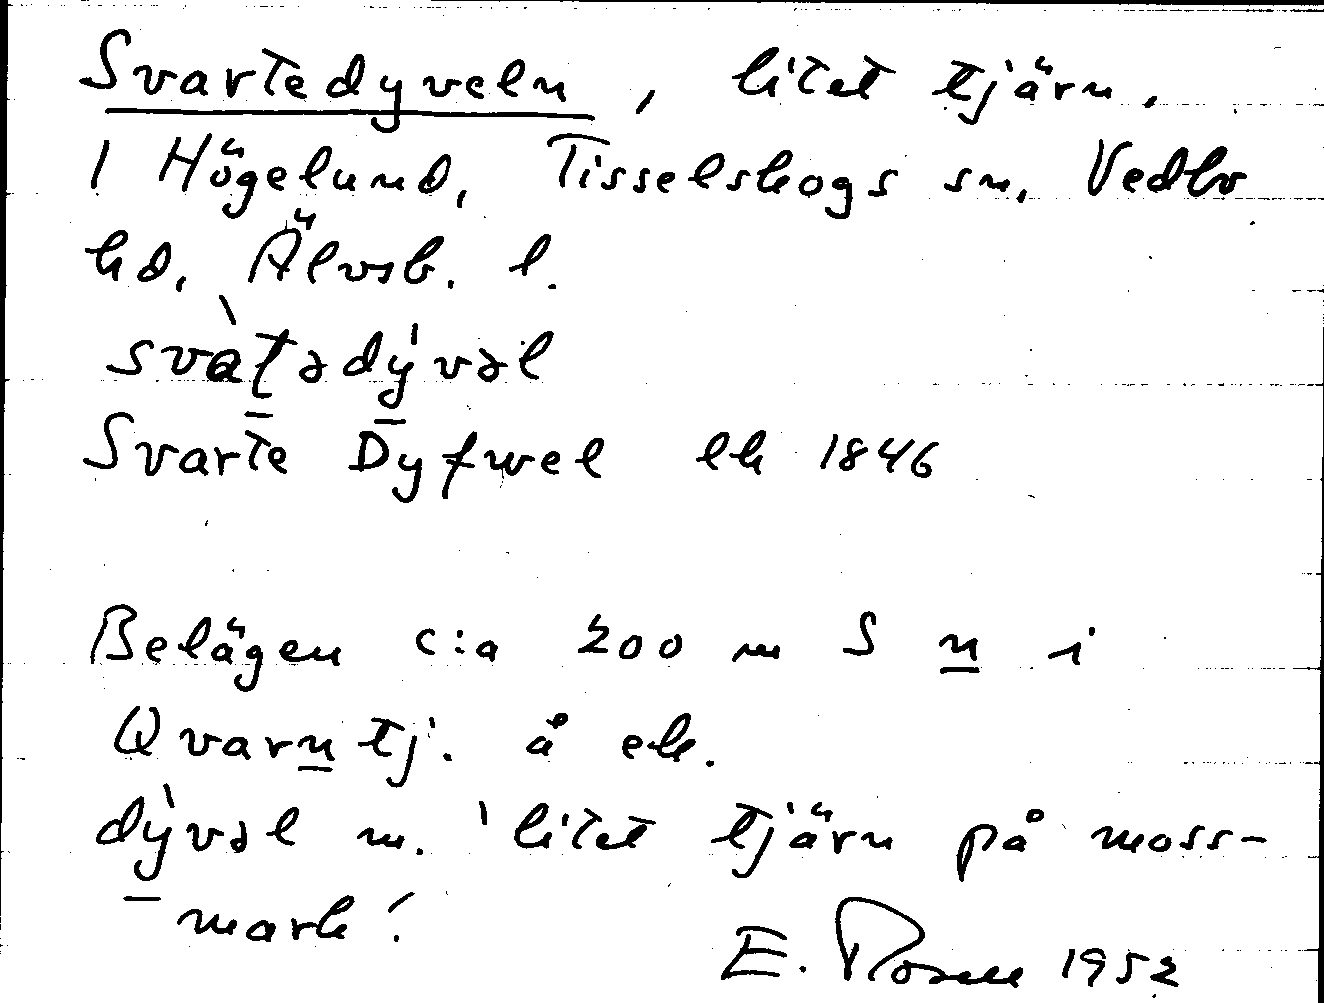 Svartedyveln, litet tjärn.
I Högelund, Tisselskogs sn, Vedbo
hd, Älvsb. l.
svat̠ədývəl
Svarte Dyfwel ek 1846
Belägen c:a 200 m S n i
Qvarntj. å ek.
dỳvəl m. 'litet tjärn på moss-
mark'.
E. Rosell 1952